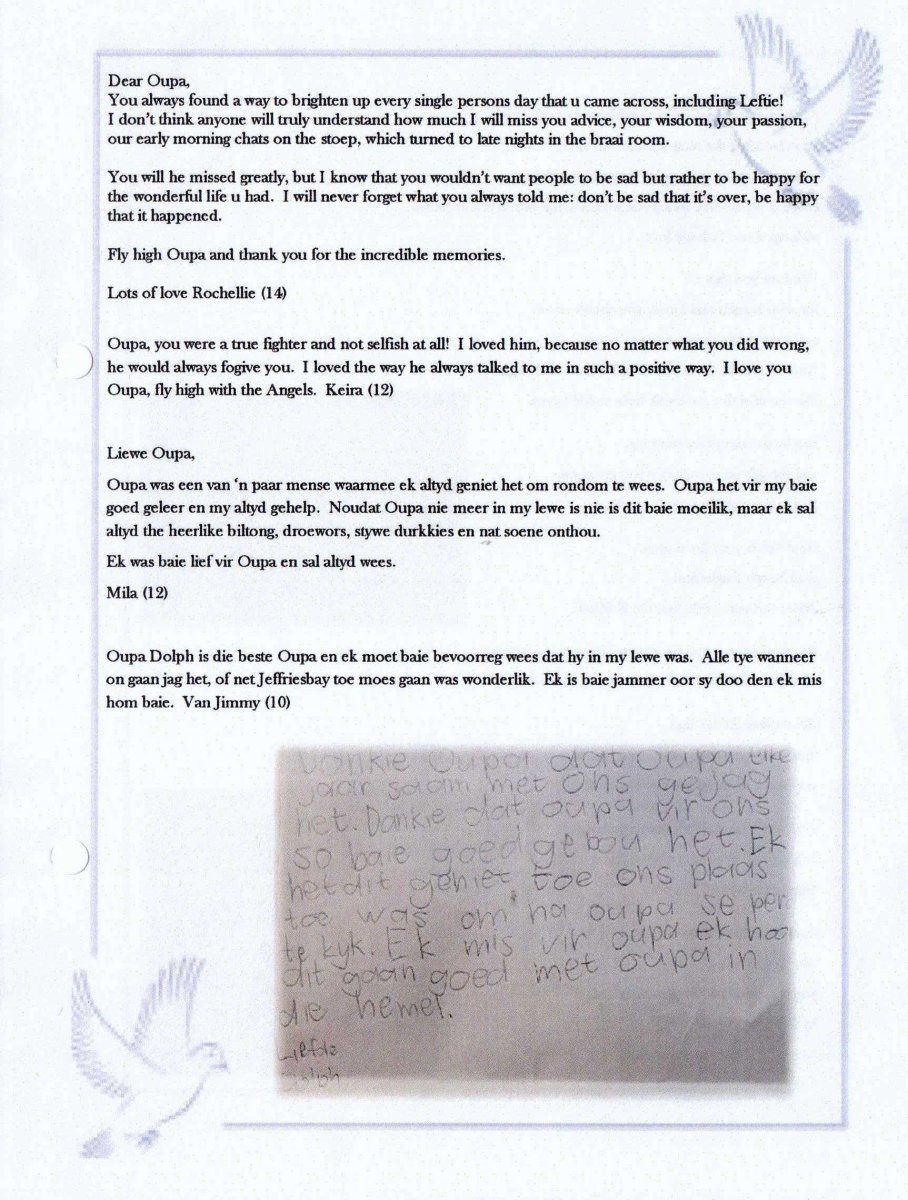 Dear Oupa,
You always found a way to brighten up every single persons day that u came across, including Leftie!
I don't think anyone will truly understand how much I will miss you advice, your wisdom, your passion,
our early morning chats on the stoep, which turned to late nights in the braai room.
You will he missed greatly, but I know that you wouldn't want people to be sad but rather to be happy for
the wonderful life u had. I will never forget what you always told me: don't be sad that it's over, be happy
that it happened.
Fly high Oupa and thank you for the incredible memories.
Lots of love Rochellie (14)
Oupa, you were a true fighter and not selfish at all! I loved him, because no matter what you did wrong,
he would always fogive you. I loved the way he always talked to me in such a positive way. I love you
Oupa, fly high with the Angels. Keira (12)
Liewe Oupa,
Oupa was een van 'n paar mense waarmee ek altyd geniet het om rondom te wees. Oupa het vir my baie
goed geleer en my altyd gehelp. Noudat Oupa nie meer in my lewe is nie is dit baie moeilik, maar ek sal
altyd the heerlike biltong, droewors, stywe durkkies en nat soene onthou.
Ek was baie lief vir Oupa en sal altyd wees.
Mila (12)
Oupa Dolph is die beste Oupa en ek moet baie bevoorreg wees dat hy in my lewe was. Alle tye wanneer
on gaan jag het, of net Jeffriesbay toe moes gaan was wonderlik. Ek is baie jammer oor sy doo den ek mis
hom baie. Van Jimmy (10)
Dankie Oupa dat Oupa elke
jaar saam met ons gejag
het. Dankie dat oupa vir ons
so baie goed gebou het. Ek
het dit geniet toe ons plaas
toe was om na oupa se per
te kyk. Ek mis vir oupa ek hoo
dit gaan goed met oupa in
die hemel.
Liefde